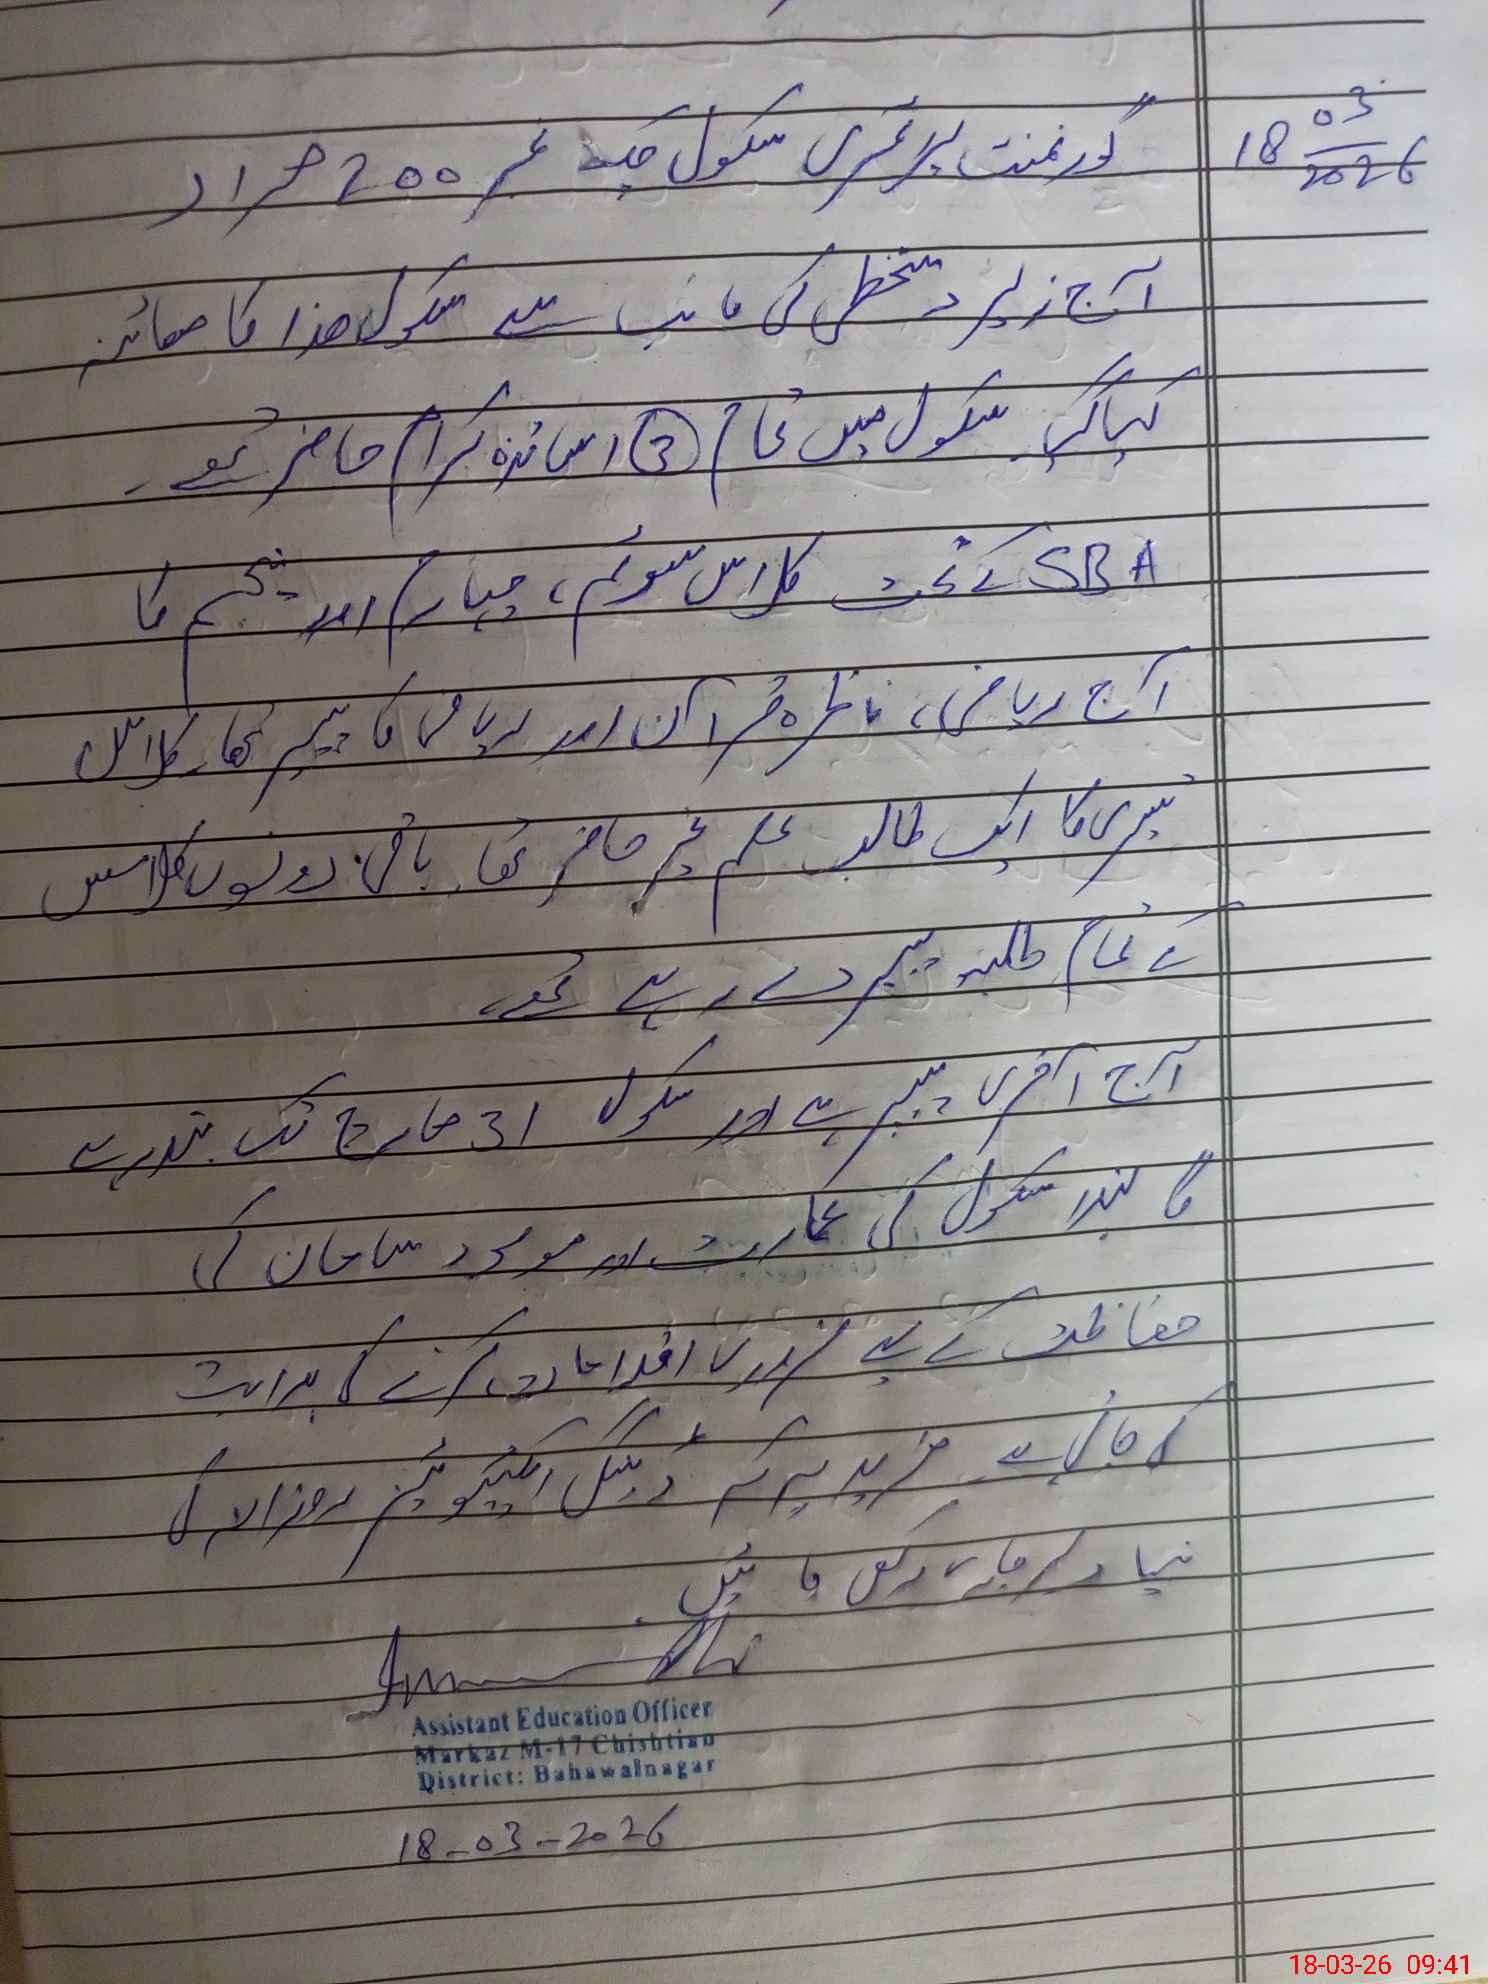 18 03/2026
گورنمنٹ پرائمری سکول چک نمبر 200 مراد
آج زیر دستخطی کی جانب سے سکول ھذا کا معائنہ
کیا گیا۔ سکول میں تمام 3 اساتذہ کرام حاضر تھے۔
SBA کے تحت کلاس سوئم، چہارم اور پنجم کا
آج ریاضی، ناظرہ قرآن اور ریاضی کا پیپر تھا۔ کلاس
تیسری کا ایک طالب علم غیر حاضر تھا۔ باقی دونوں کلاسس
کے تمام طلبہ پیپر دے رہے تھے۔
آج آخری پیپر ہے اور سکول 31 مارچ تک بند رہے
گا لہذا سکول کی عمارت اور موجود سامان کی
حفاظت کے لیے ضروری اقدامات کرنے کی ہدایت
کی جاتی ہے۔ مزید یہ کہ ڈینگی ایکٹیویٹیز روزانہ کی
بنیاد پر جاری رکھی جائیں۔
Assistant Education Officer
Markaz M-17 Chishtian
District: Bahawalnagar
18-03-2026
18-03-26 09:41